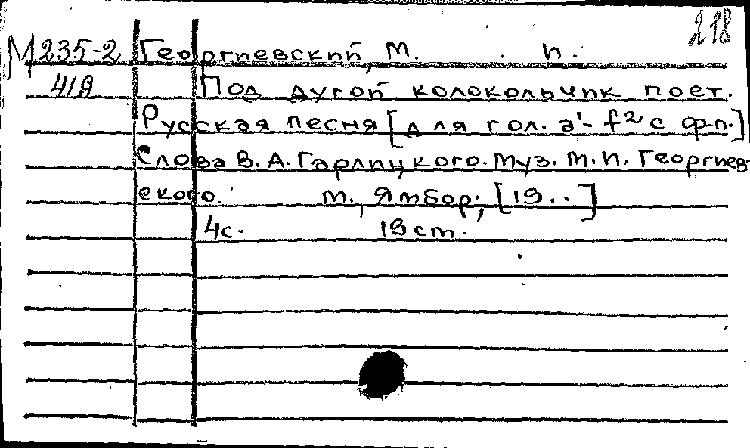 218
М 235-2 Георгиевский, М. . И.
419 Под дугой колокольчик поет.
Русская песня [для гол. a¹- f² с ф-п.]
Слова В. А. Гарлицкого. Муз. М. И. Георгиев-
ского. М., Ямбор, [19..]
4с. 19 см.